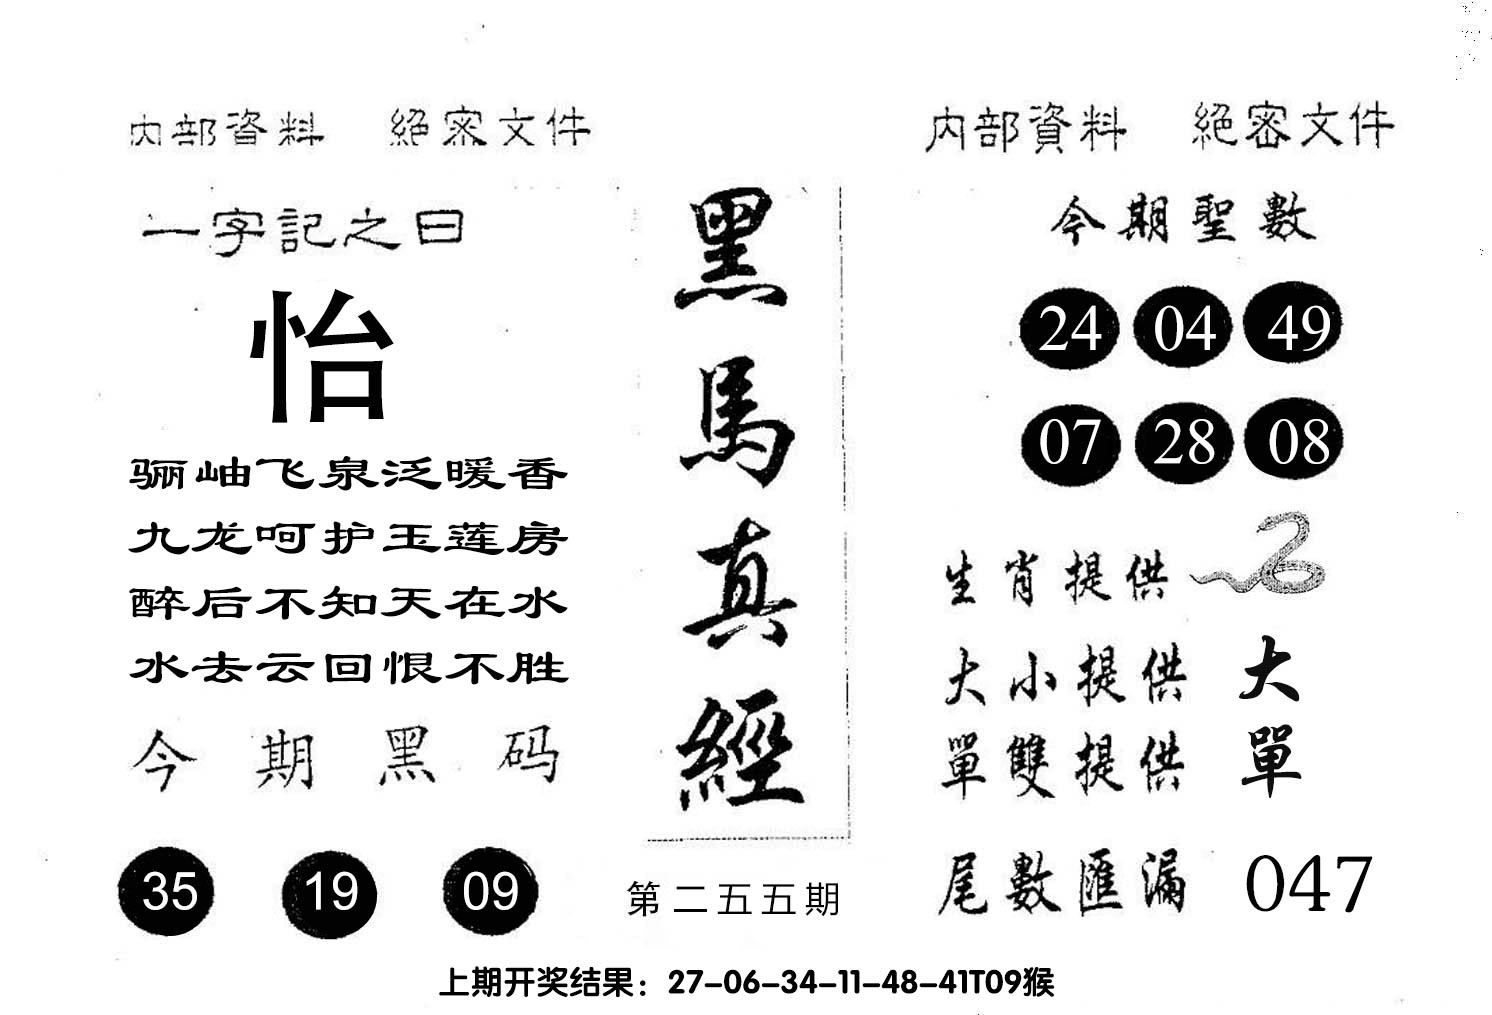 内部資料 絕密文件
一字記之曰
怡
骊岫飞泉泛暖香
九龙呵护玉莲房
醉后不知天在水
水去云回恨不胜
今期黑码
35 19 09
黑馬真經
第二五五期
内部資料 絕密文件
今期聖數
24 04 49
07 28 08
生肖提供
大小提供 大
單雙提供 單
尾數匯漏 047
上期开奖结果：27-06-34-11-48-41T09猴